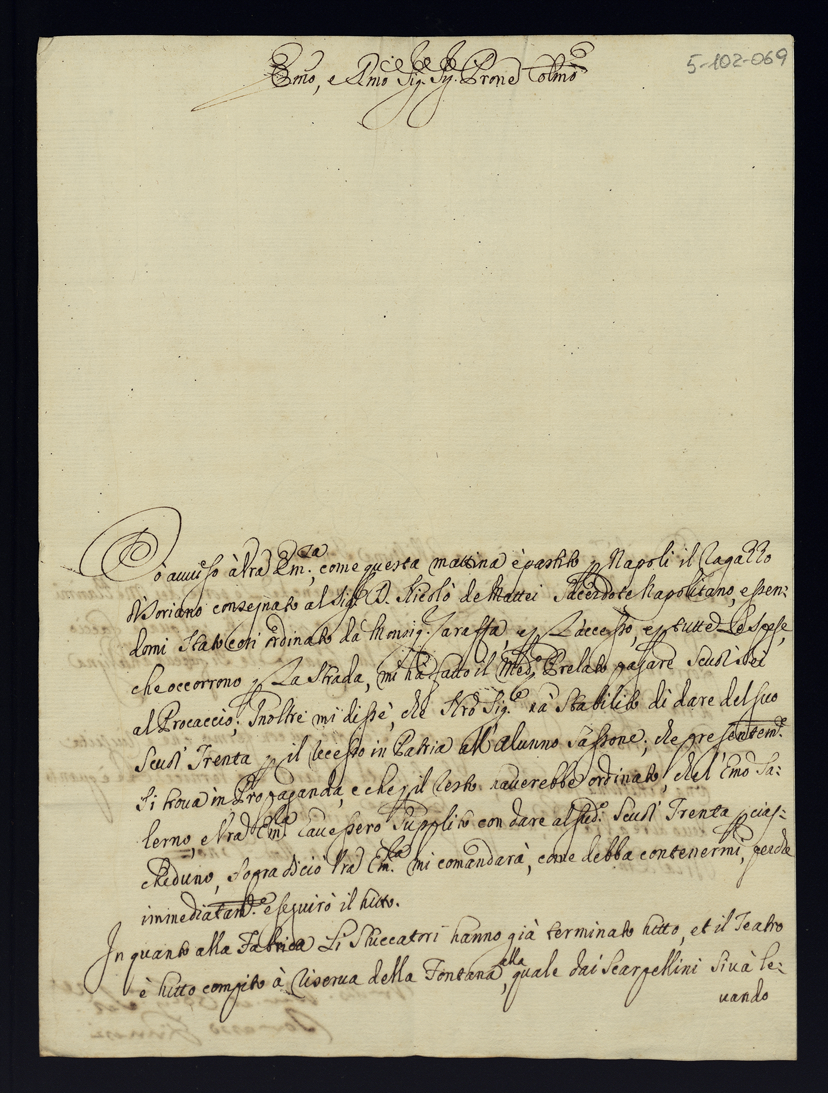 5-102-069
Emo, e Rmo Sig.r Sig.r Prone Colmo
Dò avviso à Vra Em.za, come questa mattina è partito p Napoli il Ragazzo
di Soriano consegnato al Sig.r D. Nicolò de Mattei Sacerdote Napolitano, essen-
domi stato così ordinato da Monsig.r Caraffa, e p L'accesso, e p tutte Le spese,
che occorrono p La strada, mi hà fatto il Med.o Prelato pagare Scudi sei
al Procaccio; Inoltre mi disse, che Sig.re hà stabilito di dare del suo
Scudi Trenta p il recesso in Patria all'Alunno Sassone, che presentem.e
si trova in Propaganda, e che p il resto haverebbe ordinato, che l'Emo Sa-
lerno, e Vra Em.za havessero supplito con dare al sud.o Scudi Trenta p cias-
cheduno, sopra di ciò Vra Em.za mi comandarà, come debba contenermi, perche
immediatam.e eseguirò il tutto.
In quanto alla Fabrica Li Stuccatori hanno già terminato tutto, et il Teatro
è tutto compito à riserva della Fontana, alla quale dai Scarpellini si và le-
vando